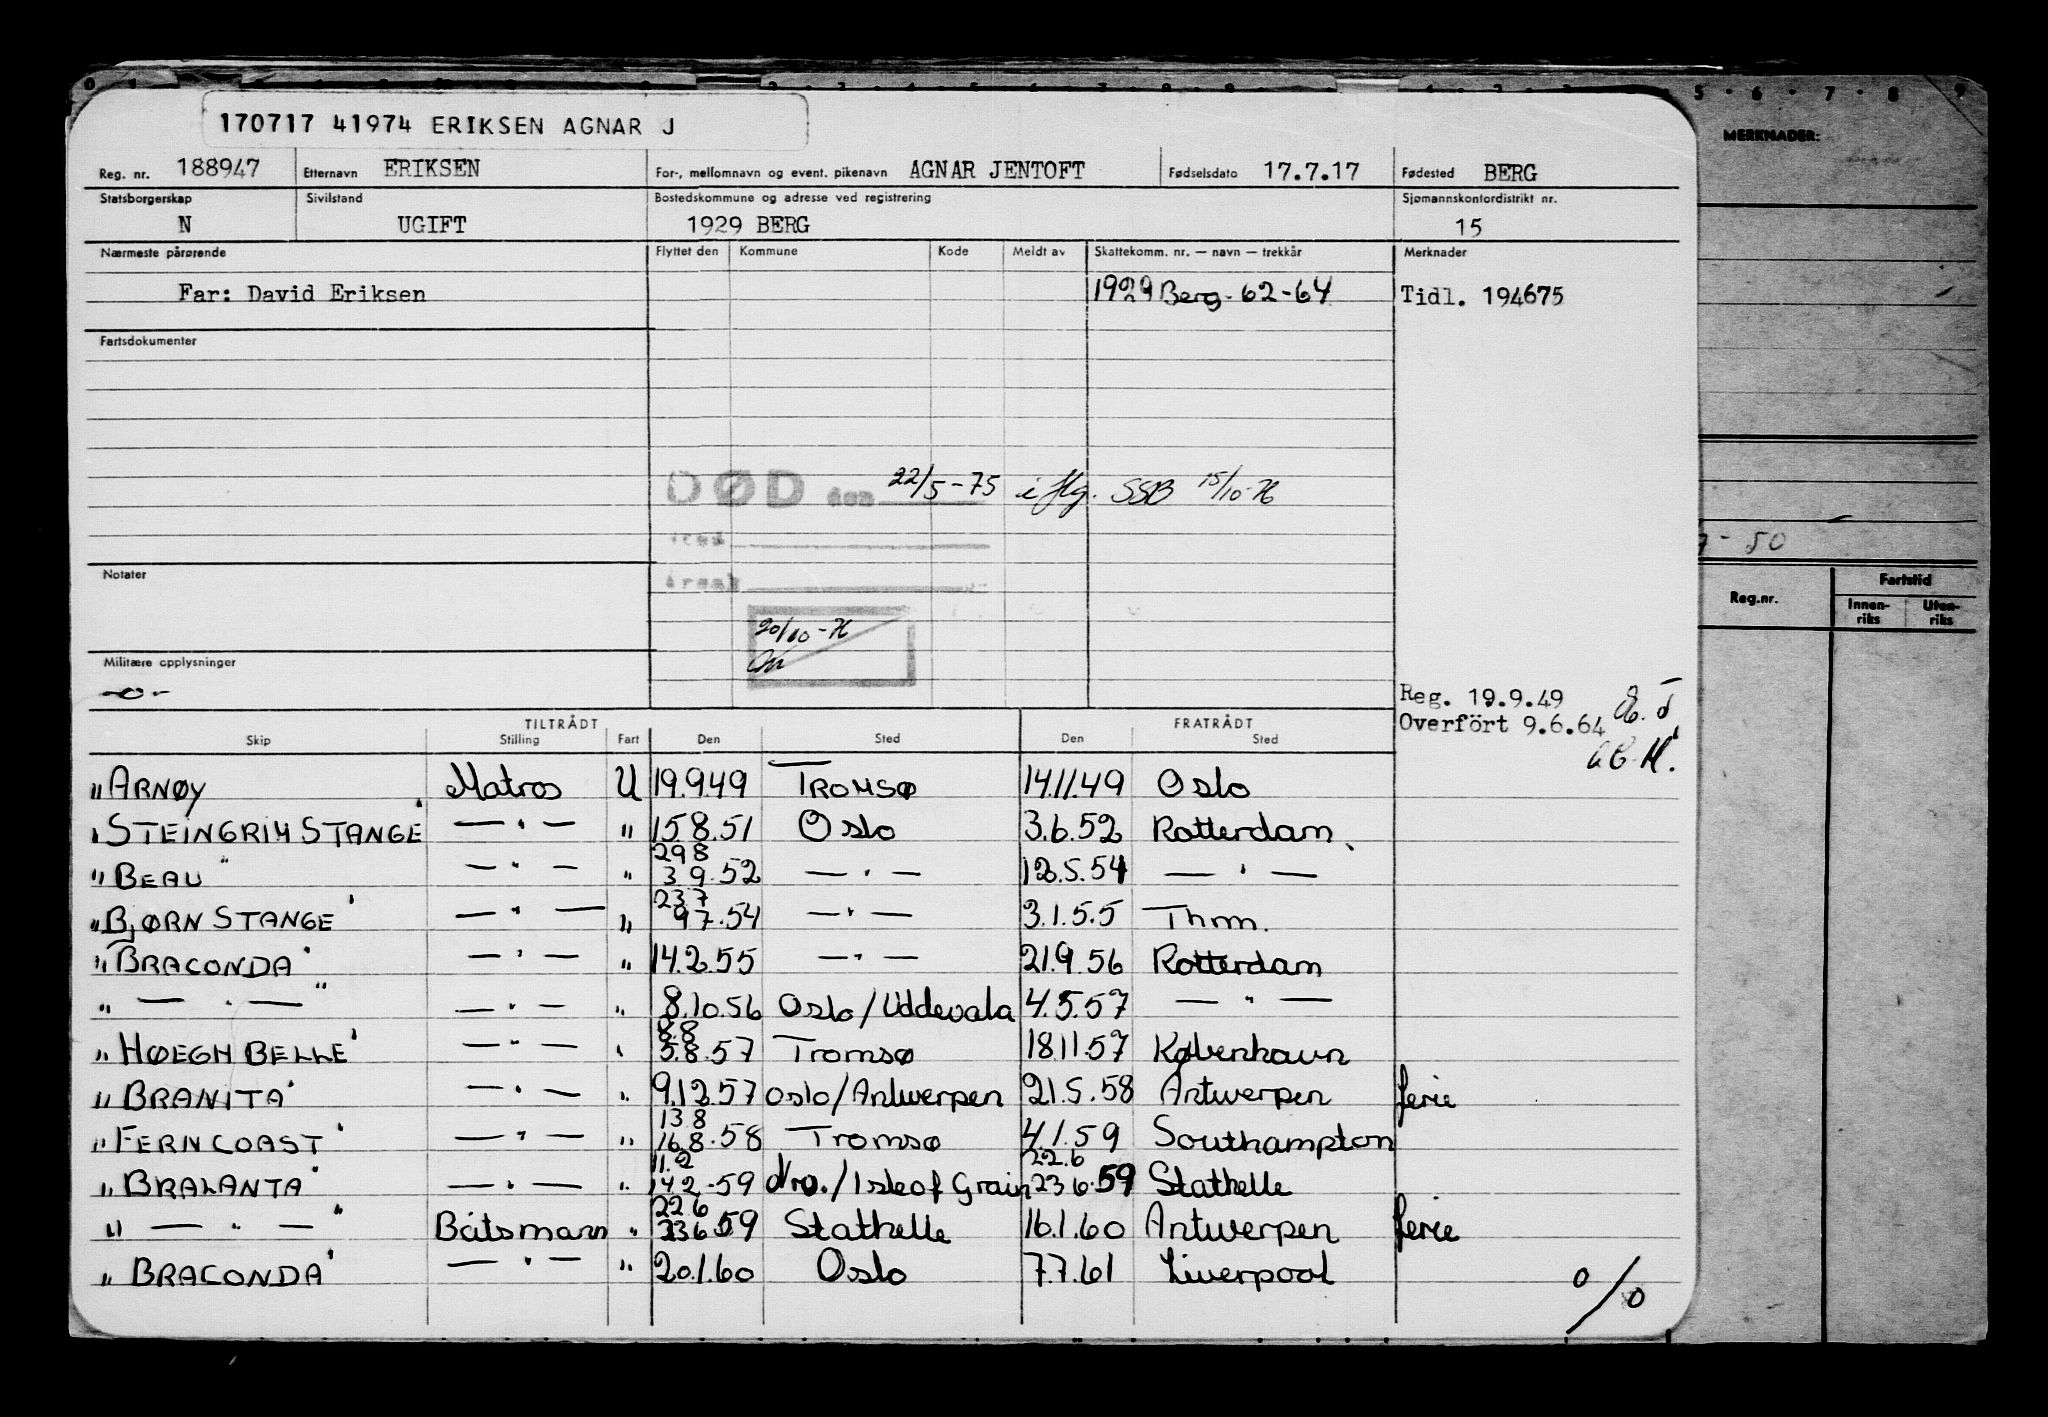 170717 41974 ERIKSEN AGNAR J
Reg. nr. 188947 Etternavn ERIKSEN For-, mellomnavn og event. pikenavn AGNAR JENTOFT Fødselsdato 17.7.17 Fødested BERG
Statsborgerskap Sivilstand Bostedskommune og adresse ved registrering Sjømannskontordistrikt nr.
N UGIFT 1929 BERG 15
Nærmeste pårørende Flyttet den Kommune Kode Meldt av Skattekomm. nr. — navn — trekkår Merknader
Far: David Eriksen 1929 Berg - 62-64 Tidl. 194675
Fartsdokumenter
DØD den 22/5-75 iflg. SSB 15/10-76
Notater
20/10-76
Militære opplysninger
-o-
Reg. 19.9.49
Overfört 9.6.64
TILTRÅDT FRATRÅDT
Skip Stilling Fart Den Sted Den Sted
"ARNØY Matros U 19.9.49 TROMSØ 14.11.49 Oslo
"STEINGRIM STANGE" — " — " 15.8.51 Oslo 3.6.52 Rotterdam
29 8
"BEAU" — " — " 3 9.52 — " — 12.5.54 — " —
23 7
"BJØRN STANGE" — " — " 9 7.54 — " — 3.1.55 Thm.
"BRACONDA" — " — " 14.2.55 — " — 21.9.56 Rotterdam
" — " — " — " — " 8.10.56 Oslo/Uddevala 4.5.57 — " —
8.8
"HØEGH BELLE" — " — " 5.8.57 Tromsø 18.11.57 København
"BRANITA" — " — " 9.12.57 Oslo/Antwerpen 21.5.58 Antwerpen ferie
13 8
"FERNCOAST" — " — " 16.8.58 Tromsø 4.1.59 Southampton
11.2 22.6
"BRALANTA" — " — " 14 2.59 Nrd./Isle of Grain 23 6.59 Stathelle
22 6
" — " — " Båtsmann " 23 6 59 Stathelle 16.1.60 Antwerpen ferie
"BRACONDA" — " — " 20.1.60 Oslo 7.7.61 Liverpool
o/o
MERKNADER:
7-50
Reg.nr. Fartstid
Innen-riks Uten-riks